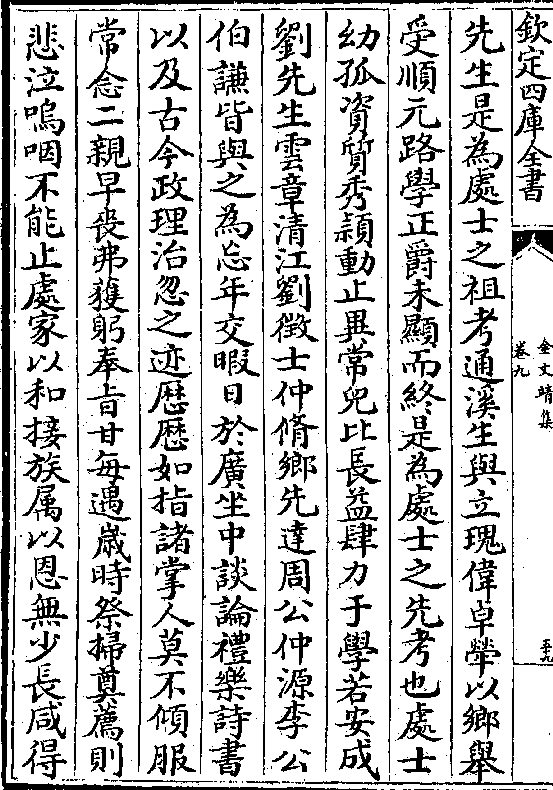 欽定四庫全書
金文靖集
卷九
先生是為處士之祖考通溪生與立瑰偉卓犖以鄉舉
受順元路學正爵未顯而終是為處士之先考也處士
幼孤資質秀穎動止異常兒比長益肆力于學若安成
劉先生雲章清江劉徵士仲脩鄉先達周公仲源李公
伯謙皆與之為忘年交暇日於廣坐中談論禮樂詩書
以及古今政理治忽之迹歴歴如指諸掌人莫不傾服
常念二親早喪弗獲躬奉旨甘每遇歲時祭掃奠薦則
悲泣嗚咽不能止處家以和接族属以恩無少長咸得